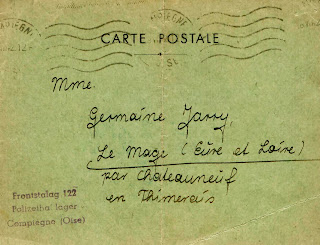 CARTE POSTALE
Mme.
Germaine Jarry,
Le Mage (Eûre et Loire)
par Chateauneuf
en Thimerais
Frontstalag 122
Polizeihaftlager
Compiegne (Oise)